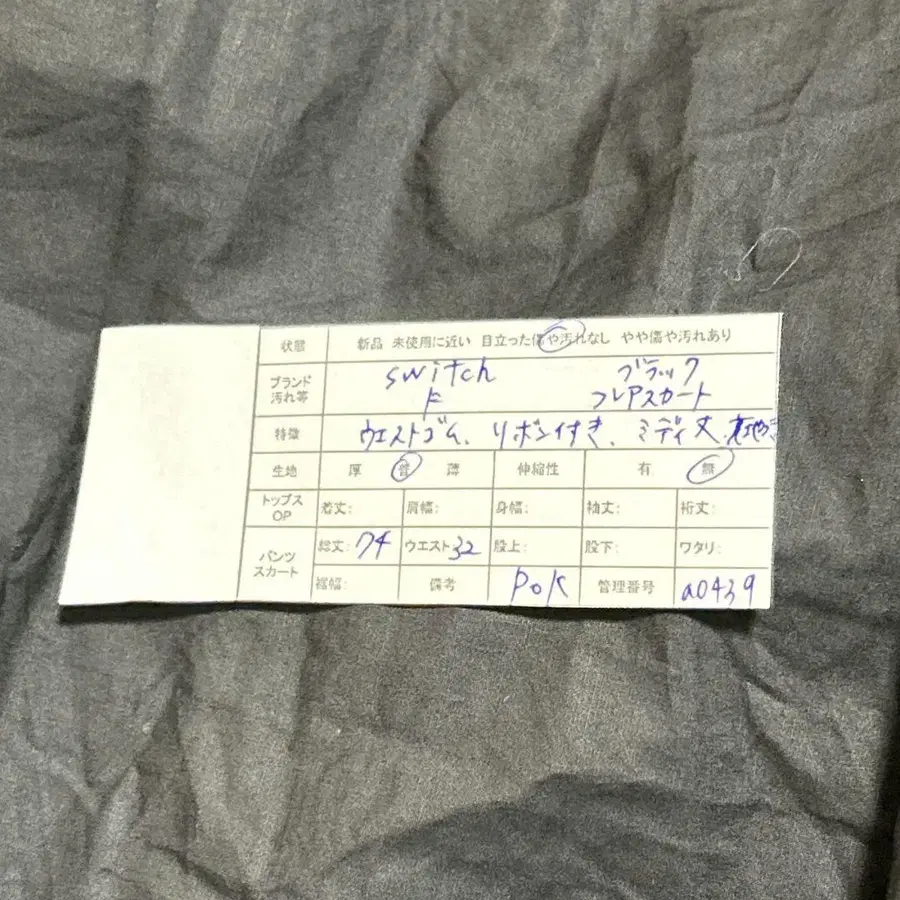 状態 新品 未使用に近い 目立った傷や汚れなし やや傷や汚れあり
ブランド 汚れ等 switch ブラック
F フレアスカート
特徴 ウエストゴム、リボン付き、ミディ丈、
生地 厚 普 薄 伸縮性 有 無
トップス OP 着丈: 肩幅: 身幅: 袖丈: 裄丈:
パンツ スカート 総丈: 74 ウエスト 32 股上: 股下: ワタリ:
裾幅: 備考 Pok 管理番号 a0439